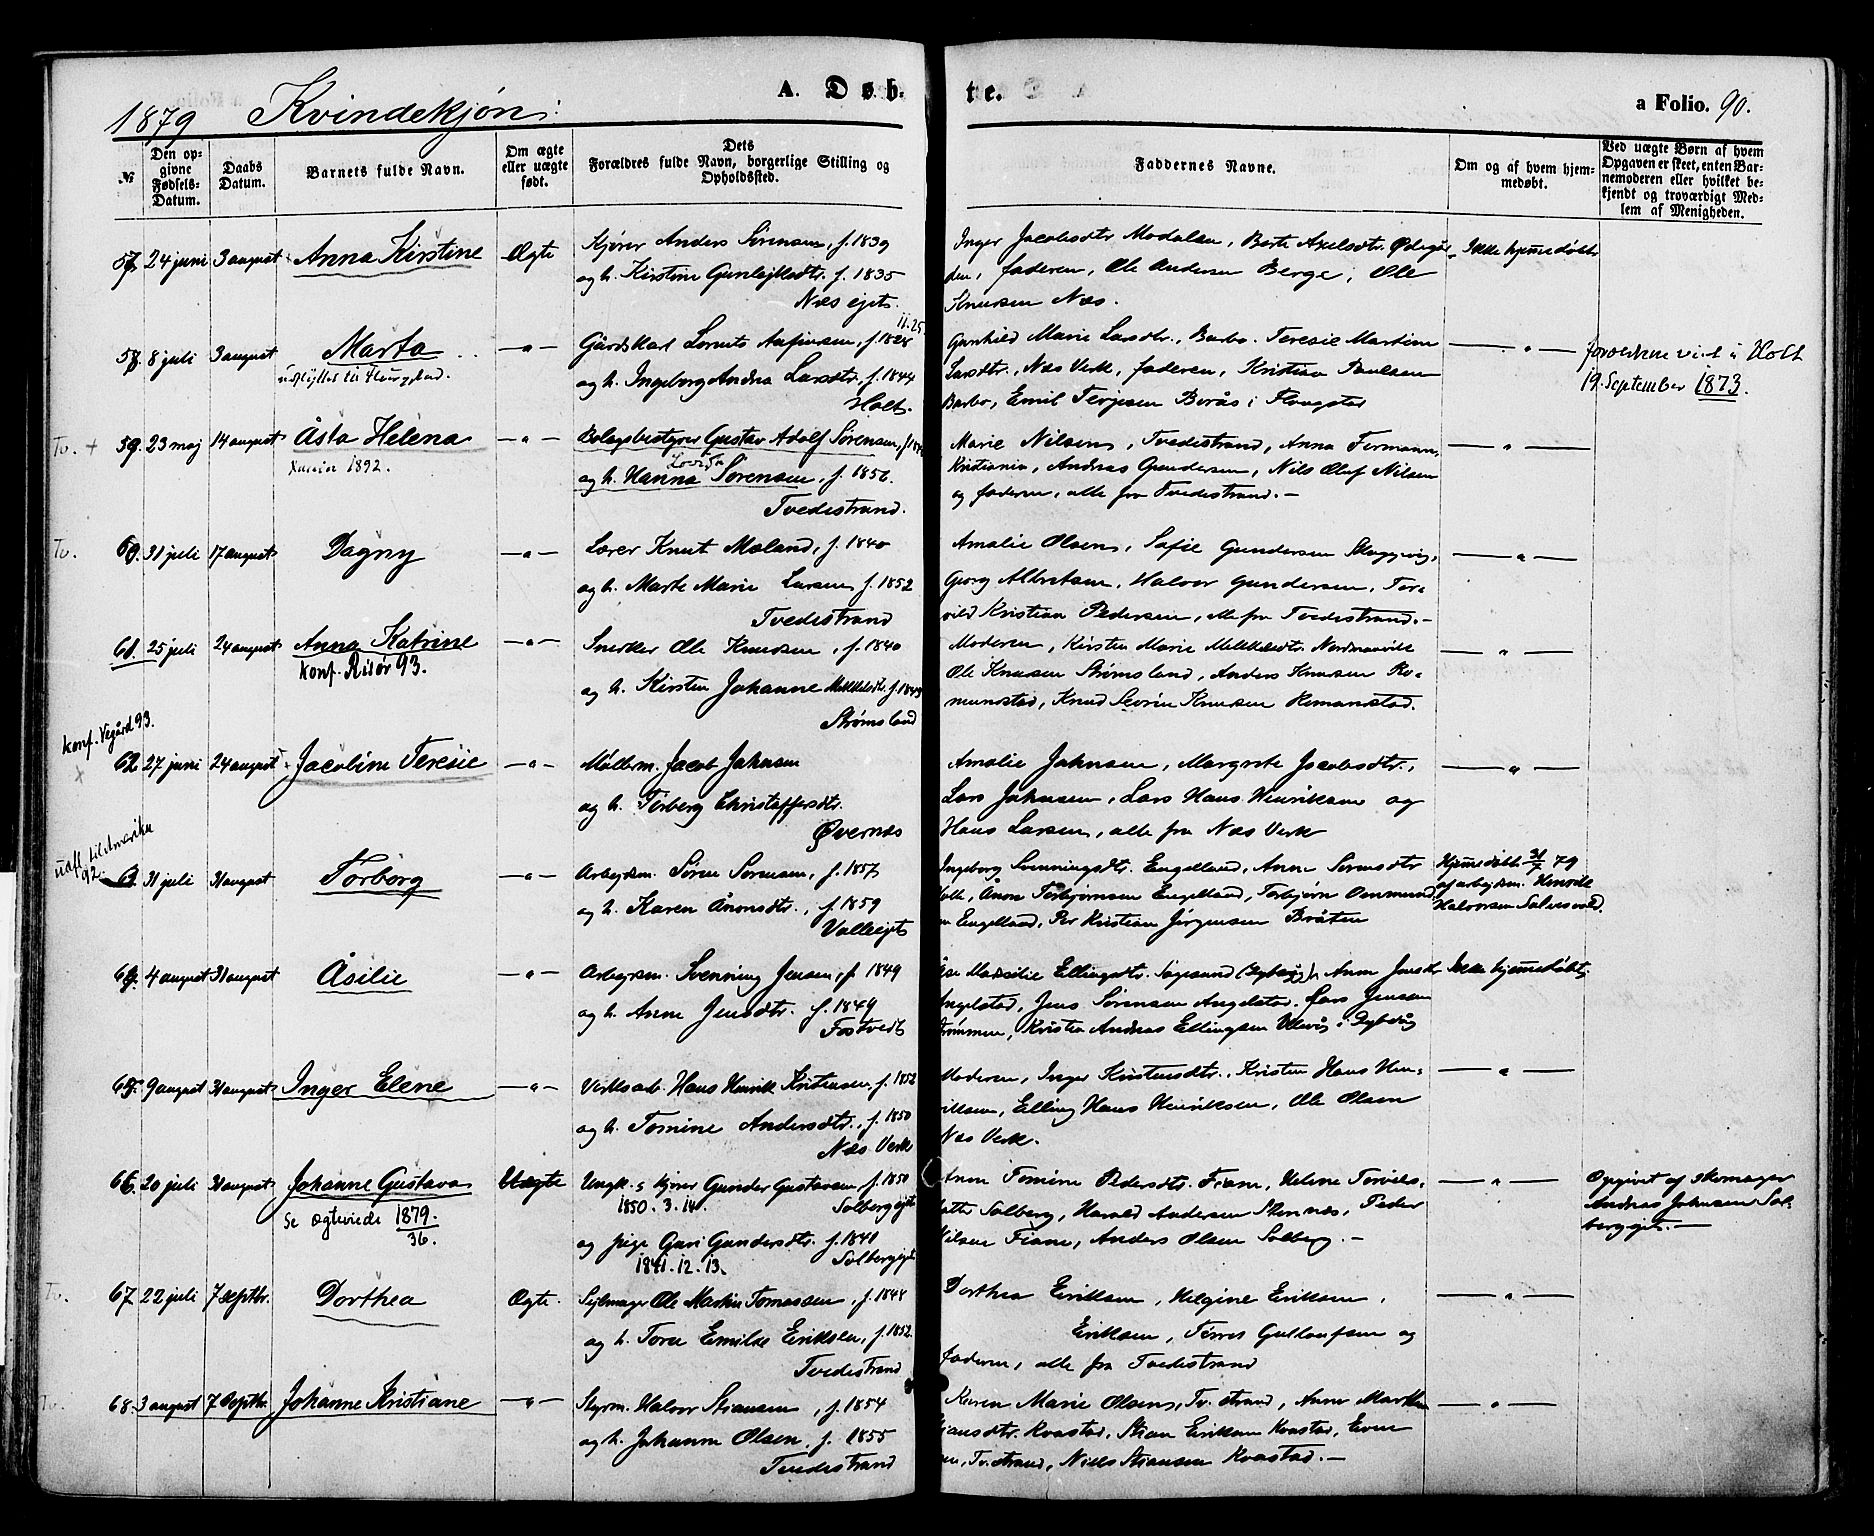 1879 Kvindekjøn:
A. Døb-
te.
a Folio. 90.
№
Den op-
givne
Fødsels-
Datum.
Daabs
Datum.
Barnets fulde Navn.
Om ægte
eller uægte
født.
Dets
Forældres fulde Navn, borgerlige Stilling og
Opholdssted.
Faddernes Navne.
Om og af hvem hjem-
medøbt.
Ved uægte Børn af hvem
Opgaven er skeet, enten Bar-
nemoderen eller hvilket be-
kjendt og troværdigt Med-
lem af Menigheden.
57. 24 juni 3 august Anna Kirstine Ægte Kjører Anders Sørensen, f. 1839
og h. Kirstine Gunlejksdtr. f. 1835
Næs ejet.
Inger Jacobsdtr Modalen, Berte Axelsdtr. Ødegår-
den, faderen, Ole Andersen Berge, Ole
Knutsen Næs.
Ikke hjemmedøbt
58. 8 juli 3 august Marta —"— Gårdskarl Lornts Anfinsen, f. 1828
11.25.
udflyttet til Flougstad.
og h. Ingeborg Andrea Larsdtr. f. 1844
Holt.
Gunhild Marie Larsdtr., Barbo. Teresie Martine
Larsdtr., Næs Verk, faderen, Kristian Paulsen
Barbo, Emil Terjesen Borås i Flougstad
—"—
forældrene viet i Holt
19 September 1873.
Tv. +
59. 23 maj 14 august Åsta Helena —"— Bolagsbestyrer Gustav Adolf Sørensen, f. 18
1892.
og h. Hanna Lovise Sørensen, f. 1856.
Tvedestrand.
Marie Nilsen, Tvedestrand, Anna Fermann,
Kristiania, Andreas Gundersen, Nils Oluf Nilsen
og faderen, alle fra Tvedestrand.—
—"—
Tv.
60. 31 juli 17 august Dagny —"— Lærer Knut Moland, f. 1840
og h. Marte Marie Larsen, f. 1852
Tvedestrand
Amalie Olsen, Sofie Gundersen
Georg Albretsen, Halvor Gundersen, Tor-
vild Kristian Pedersen, alle fra Tvedestrand.—
—"—
61. 25 juli 24 august Anna Katrine —"— Snedker Ole Knudsen, f. 1840
konf. Risør 93.
og h. Kirsten Johanne Mikkelsdtr. f. 1843
Strømsland
Moderen, Kirsten Marie Mikkelsdtr.
Ole Knutsen Strømsland, Anders Knutsen Ro-
munstad, Knud Severin Knutsen Romunstad.
—"—
konf. Vegård 93.
x
62. 27 juni 24 august Jacobine Teresie —"— Møllerm. Jacob Johnsen
og h. Torberg Christoffersdtr.
Øvernæs
Amalie Johnsen, Margrete Jacobsdtr.,
Lars Johnsen, Lars Hans Henriksen og
Hans Larsen, alle fra Næs Verk
—"—
udfl. til Amerika
92.
63. 31 juli 31 august Torborg —"— Arbejdsm. Søren Sørensen, f. 1857
og h. Karen Ånonsdtr., f. 1859
Valleejet
Ingeborg Svenningsdtr. Engelland, Anne Sørensdtr
Valle, Ånon Torbjørnsen Engelland, Torbjørn Omund
sen Engelland, Per Kristian Jørgensen Bråten
Hjemmedøbt 31/7 79
af arbejdsm. Henrik
Halvorsen Solersvold.
64. 4 august 31 august Åsilie —"— Arbejdsm. Svenning Jensen, f. 1849
og h. Anne Jensdtr. f. 1849
Fostvedt
Åse Marsilie Ellingsdtr. Sagesund (Dybvåg), Anne Jensdtr
Angelstad, Jens Sørensen Angelstad. Lars Jensen
Strømmen, Kristen Andreas Ellingsen Ulevåg i Dybvåg
Ikke hjemmedøbt
65. 9 august 31 august Inger Elene —"— Verksarb. Hans Henrik Kristensen, f. 1852
og h. Tomine Andersdtr., f. 1850
Næs Verk
Moderen, Inger Kristensdtr., Kristen Hans Hen-
riksen, Elling Hans Henriksen, Ole Olsen
Næs Verk.
—"—
66. 20 juli 31 august Johanne Gustava Uægte Ungk. & kjører Gunder Gustavsen f. 1850
1850. 3. 14. Solbergejet
Se ægteviede 1879.
36.
og pige Guri Gundersdtr. f. 1841
1841. 12. 13. Solbergejet
Anne Tomine Pedersdtr. Fiane, Helene Torvils-
datter Solberg, Harald Andersen Stennæs, Peder
Nilsen Fiane, Anders Olsen Solberg.—
—"—
Opgivet af skomager
Andreas Johnsen Sol-
bergejet.—
Tv.
67. 22 juli 7 septbr. Dorthea Ægte. Sejlmager Ole Martin Tomassen, f. 1848
og h. Tora Emilie Eriksen, f. 1852.
Tvedestrand
Dorthea Eriksen, Helgine Eriksen,
Eriksen, Tørres Gulloufsen og
faderen, alle fra Tvedestrand
—"—
Tv.
68. 3 august 7 Septbr. Johanne Kristiane —"— Styrm. Halvor Stiansen, f. 1854
og h. Johanne Olsen, f. 1855
Tvedestrand
Karen Marie Olsen, Tv. strand, Anne Marthe
Stiansdtr. Kvastad, Stian Eriksen Kvastad, Even
sen, Tv. strand, Niels Stiansen Kvastad.—
—"—